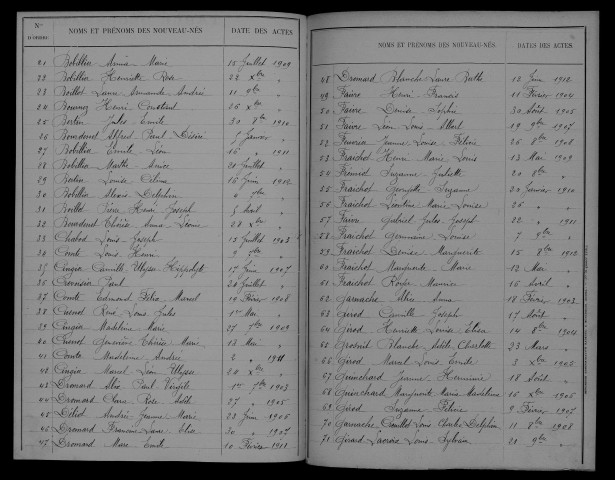 Nos D'ORDRE NOMS ET PRÉNOMS DES NOUVEAU-NÉS DATE DES ACTES
21 Bobillier Anna Marie 25 Juillet 1909
22 Bobillier Henriette Rose 22 Xbre "
23 Boillot Armande Andrée 11 9bre "
24 Henri Constant 26 Xbre "
25 Bertin Jules Emile 30 8bre 1910
26 Alfred Paul Désiré 5 Janvier "
27 Bobillier Emile Léon 16 " 1911
28 Bobillier Marthe 20 Juillet "
29 Louise Céline 16 Juin 1912
30 Bobillier Alexis Delphin 4 7bre "
31 Boillot Pierre Henri Joseph 5 Avril "
32 Thérèse Anna Léonie 28 Xbre "
33 Chabod Louis Joseph 13 Juillet 1903
34 Comte Louis Henri 9 7bre "
35 Cingia Camille Ulysse Hippolyte 17 Juin 1907
36 Paul 20 Juillet "
37 Comte Edmond Félix Marcel 19 Février 1908
38 Cuenot René Louis Jules 1er Mai "
39 Cingia Madeleine Marie 27 7bre 1909
40 Cuenot Geneviève Thérèse Marie 12 Mai "
41 Comte Madeleine Andrée 2 " 1911
42 Cingia Marcel Léon Ulysse 20 Xbre "
43 Dromard Paul Virgile 1er 7bre 1903
44 Dromard Rose 27 " 1905
45 Andrée Jeanne Marie 22 Juin 1906
46 Dromard 30 " 1907
47 Dromard Marc Emile 10 Février 1911
NOMS ET PRÉNOMS DES NOUVEAU-NÉS DATES DES ACTES
48 Dromard Blanche Laure Berthe 12 Juin 1912
49 Faivre Henri Francis 11 Février 1904
50 Faivre Denise Sophie 30 Août 1905
51 Faivre Léon Louis Albert 19 9bre 1907
52 Jeanne Louise Félicie 26 8bre 1908
53 Fraichot Henri Marie Louis 13 Mai 1909
54 Suzanne Juliette 20 8bre "
55 Fraichot Georgette Suzanne 20 Janvier 1910
56 Fraichot Léontine Marie Louise 26 " "
57 Faivre Gabriel Jules Joseph 22 " 1911
58 Fraichot Germaine Louise 7 9bre "
59 Fraichot Denise Marguerite 15 8bre 1912
60 Fraichot Marguerite Marie 12 Mai "
61 Fraichot Roger Maurice 16 Avril "
62 Garnache Alice Anna 18 Février 1903
63 Girod Camille Joseph 17 Août "
64 Girod Henriette Louise Elisa 14 8bre 1904
65 Blanche Charlotte 23 Mars "
66 Girod Marcel Louis Emile 3 Xbre 1905
67 Guinchard Jeanne Herminie 18 Août "
68 Guinchard Marguerite Marie Madeleine 16 Xbre "
69 Girod Suzanne 9 Février 1907
70 Garnache Camille Louis Charles Delphin 11 8bre 1908
71 Girard Lacroix Louis Sylvain 21 9bre "